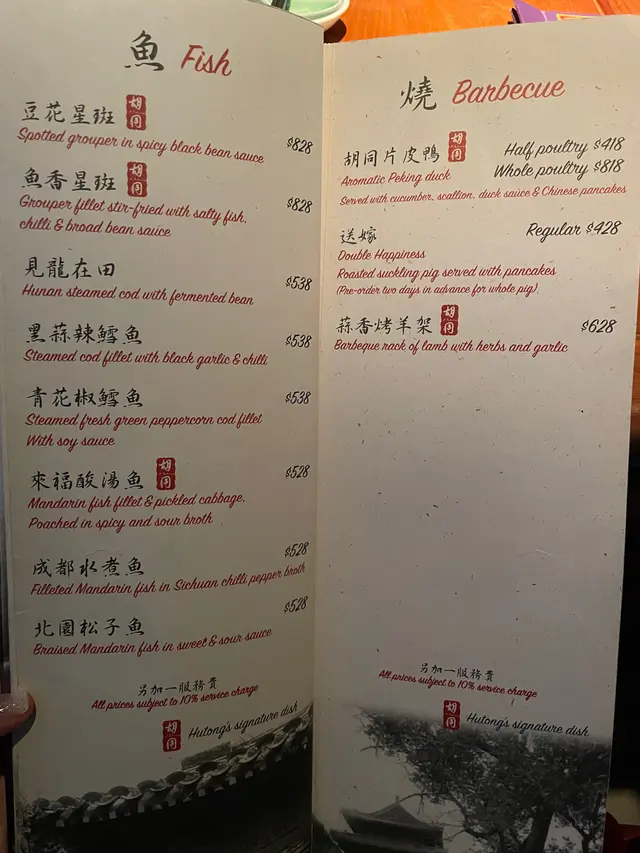 魚 Fish
豆花星斑 胡同
Spotted grouper in spicy black bean sauce $828
魚香星斑 胡同
Grouper fillet stir-fried with salty fish, $828
chilli & broad bean sauce
見龍在田
Hunan steamed cod with fermented bean $538
黑蒜辣鱈魚
Steamed cod fillet with black garlic & chilli $538
青花椒鱈魚
Steamed fresh green peppercorn cod fillet $538
With soy sauce
來福酸湯魚 胡同
Mandarin fish fillet & pickled cabbage, $528
Poached in spicy and sour broth
成都水煮魚 $528
Filleted Mandarin fish in Sichuan chilli pepper broth
北園松子魚 $528
Braised Mandarin fish in sweet & sour sauce
另加一服務費
All prices subject to 10% service charge
胡同 Hutong's signature dish
燒 Barbecue
胡同片皮鴨 胡同 Half poultry $418
Aromatic Peking duck Whole poultry $818
Served with cucumber, scallion, duck sauce & Chinese pancakes
送嫁 Regular $428
Double Happiness
Roasted suckling pig served with pancakes
(Pre-order two days in advance for whole pig)
蒜香烤羊架 胡同 $628
Barbeque rack of lamb with herbs and garlic
另加一服務費
All prices subject to 10% service charge
胡同 Hutong's signature dish